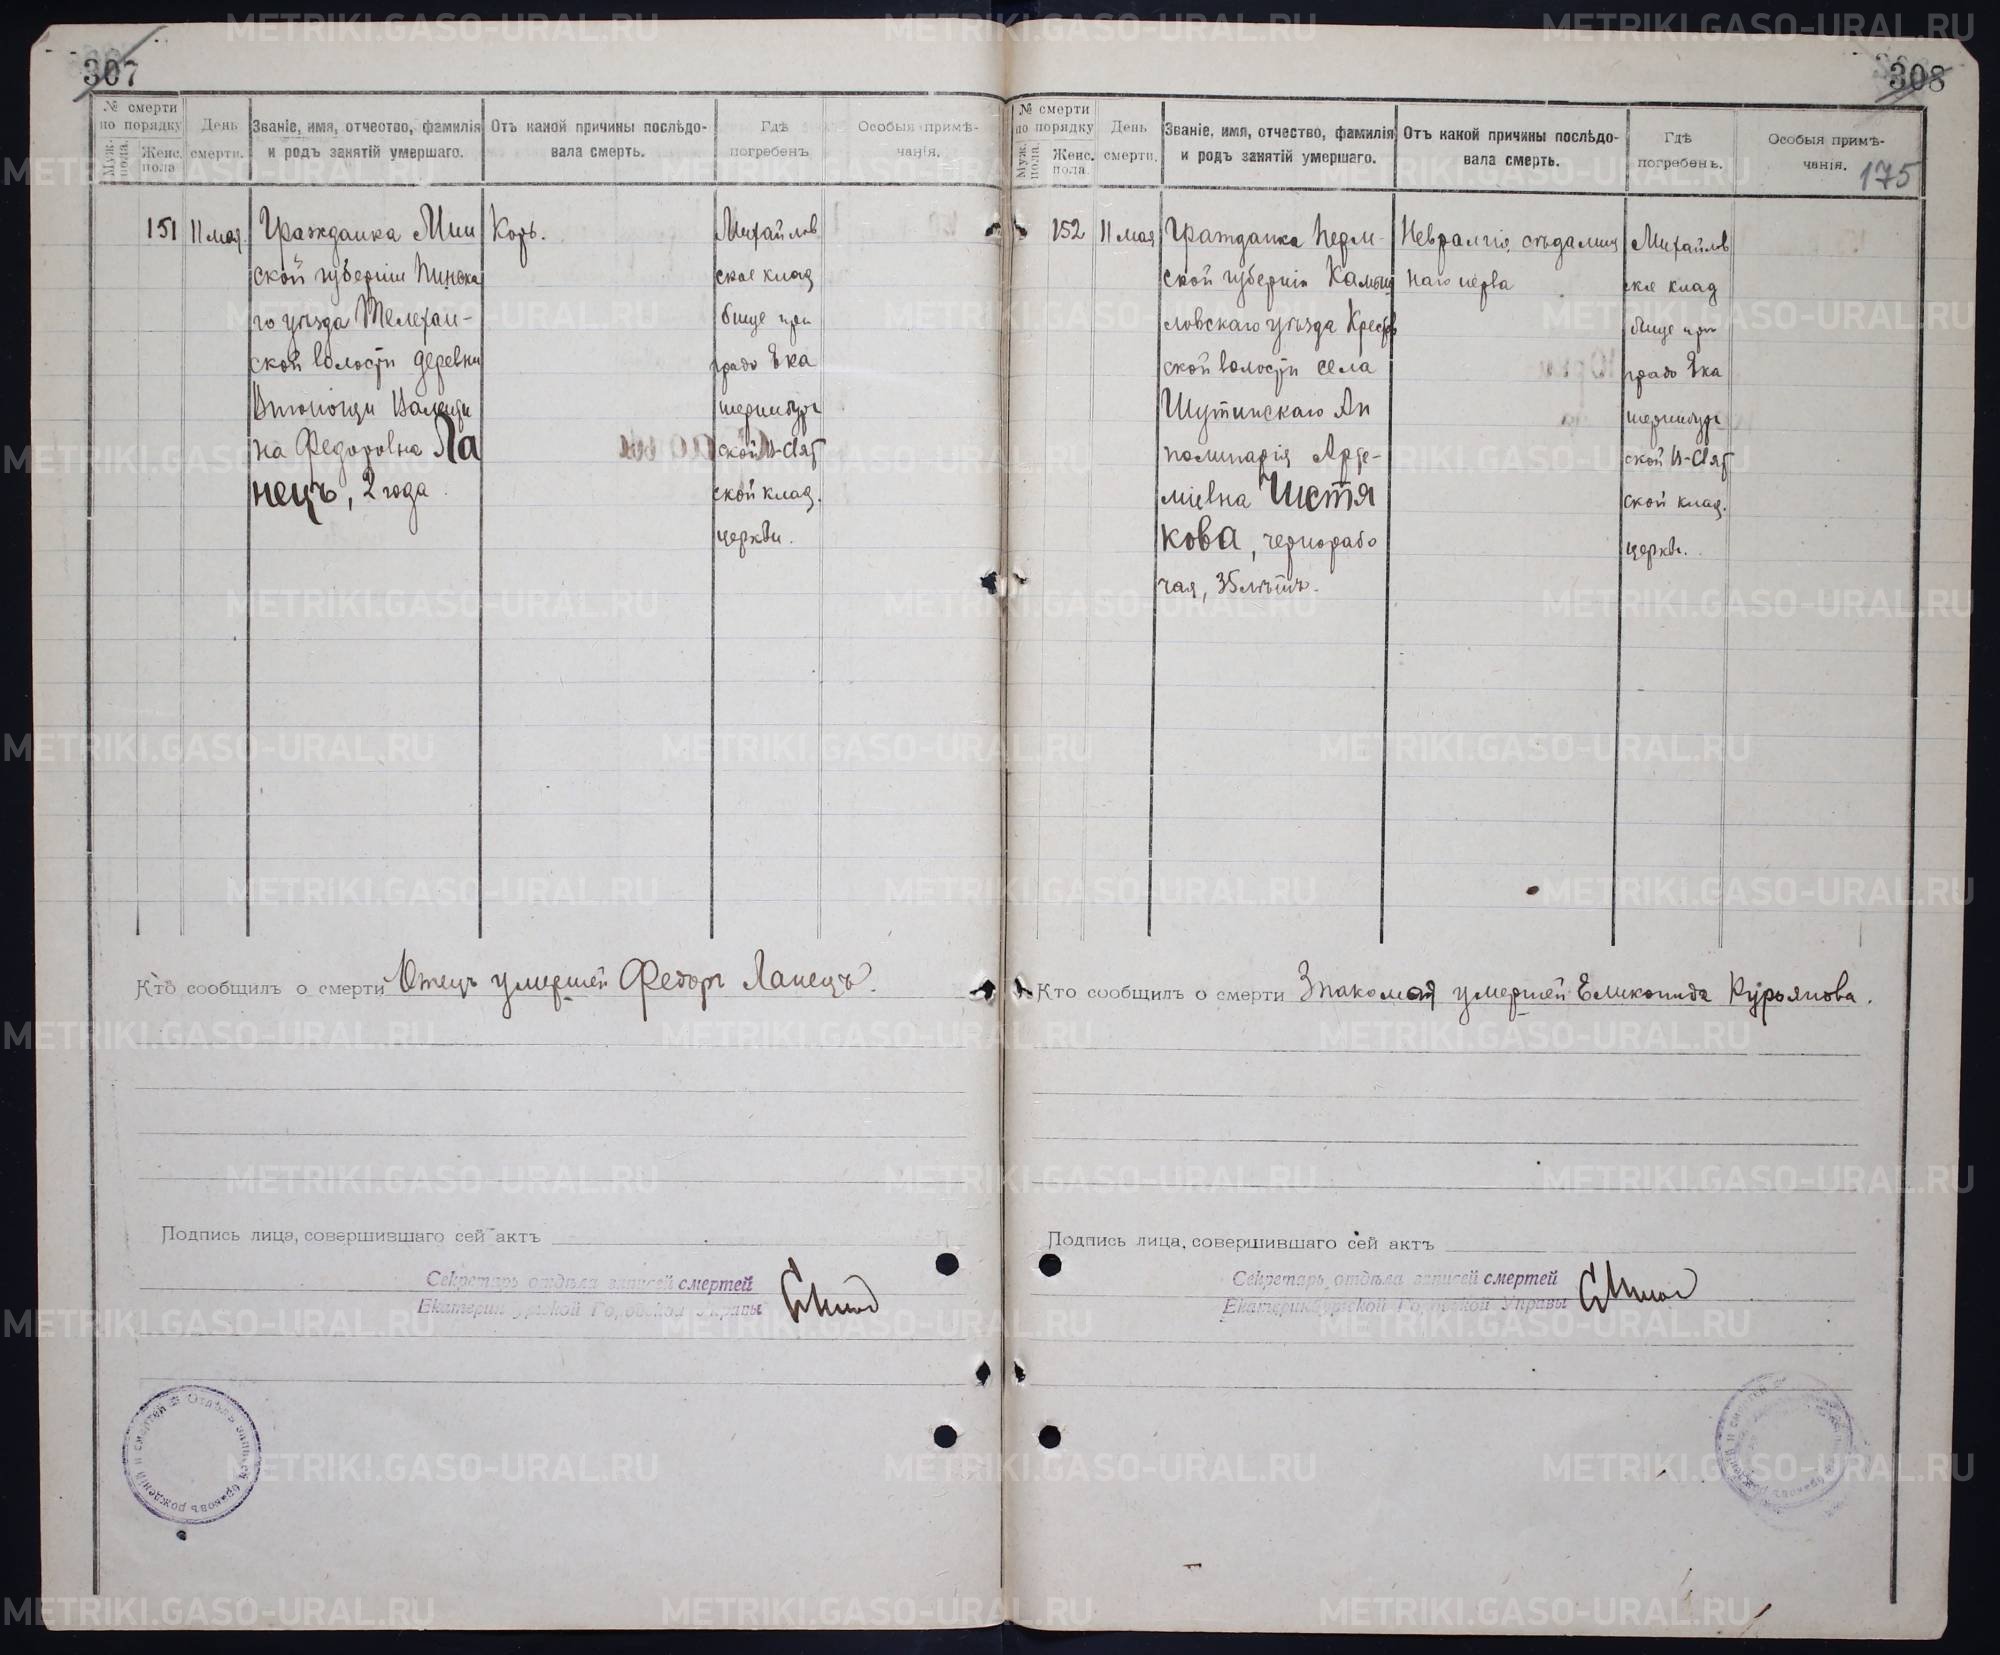 307
№ смерти по порядку
Муж. пола.
Женс. пола
День смерти.
Званіе, имя, отчество, фамилія
и родъ занятій умершаго.
Отъ какой причины послѣдо-
вала смерть.
Гдѣ
погребенъ
Особыя примѣ-
чанія.
151
11 мая.
Гражданка Мин
ской губерніи Пинска
го уѣзда Телехан-
ской волости деревни
Валенти
на Федоровна Ла
нецъ, 2 года.
Корь.
Михайлов
ское клад
бище при
градо Ека
теринбург
ской В-Свят
ской клад.
церкви.
Кто сообщилъ о смерти Отецъ умершей Федоръ Ланецъ.
Подпись лица, совершившаго сей актъ
Секретарь отдѣла записей смертей
Екатеринбургской Городской Управы
Отдѣлъ записей браковъ рожденій и смертей
308
175
№ смерти по порядку
Муж. пола.
Женс. пола.
День смерти.
Званіе, имя, отчество, фамилія
и родъ занятій умершаго.
Отъ какой причины послѣдо-
вала смерть.
Гдѣ
погребенъ.
Особыя примѣ-
чанія.
152
11 мая
Гражданка Перм-
ской губерніи Камыш
ловскаго уѣзда Крестов
ской волости села
Шутинскаго Ап
полинарія Арте-
міевна Чистя
кова, чернорабо
чая, 35 лѣтъ.
Невралгія сѣдалищ
наго нерва
Михайлов
ское клад
бище при
градо Ека
теринбург
ской В-Свят
ской клад.
церкви.
Кто сообщилъ о смерти Знакомая умершей Еликонида Курьянова.
Подпись лица, совершившаго сей актъ
Секретарь отдѣла записей смертей
Екатеринбургской Городской Управы
METRIKI.GASO-URAL.RU